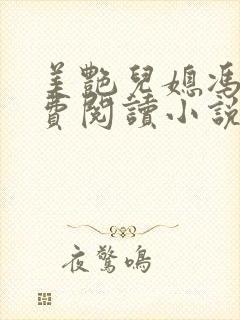 美艷兒媳馮
費閱讀小說
夜驚鳴